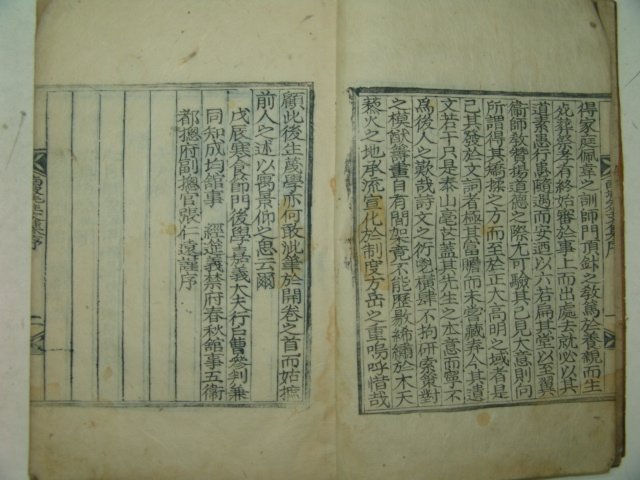 得家庭佩韋之訓師門頂針之敎篤於養親而生
死葬祭孝有終始審於事上而出處去就必以其
道素患行患隨遇而安洒以六若扁其堂以至翼
衛師敎贊揚道德之際尤可驗其已見大意則向
所謂得其矯揉之方而至於正大高明之域者是
已其發於文詞者極其富贍而未嘗藏弆今其遺
文若干只是泰山毫芒蓋其先生之本意而寧不
爲後人之歎哉詩文之衍䙝橫肆不拘硏索策對
之模猷籌畫自有間架竟不能歷敭絺繡於木天
藜火之地承流宣化於制度方岳之重嗚呼惜哉
顧此後生蔑學亦何敢泚筆於開卷之首而姑撫
前人之述以寓景仰之思云爾
戊辰寒食節門後學嘉義大夫行吏曹參判兼
同知成均館事 經筵義禁府春秋館事五衛
都摠府副摠官張仁遠謹序